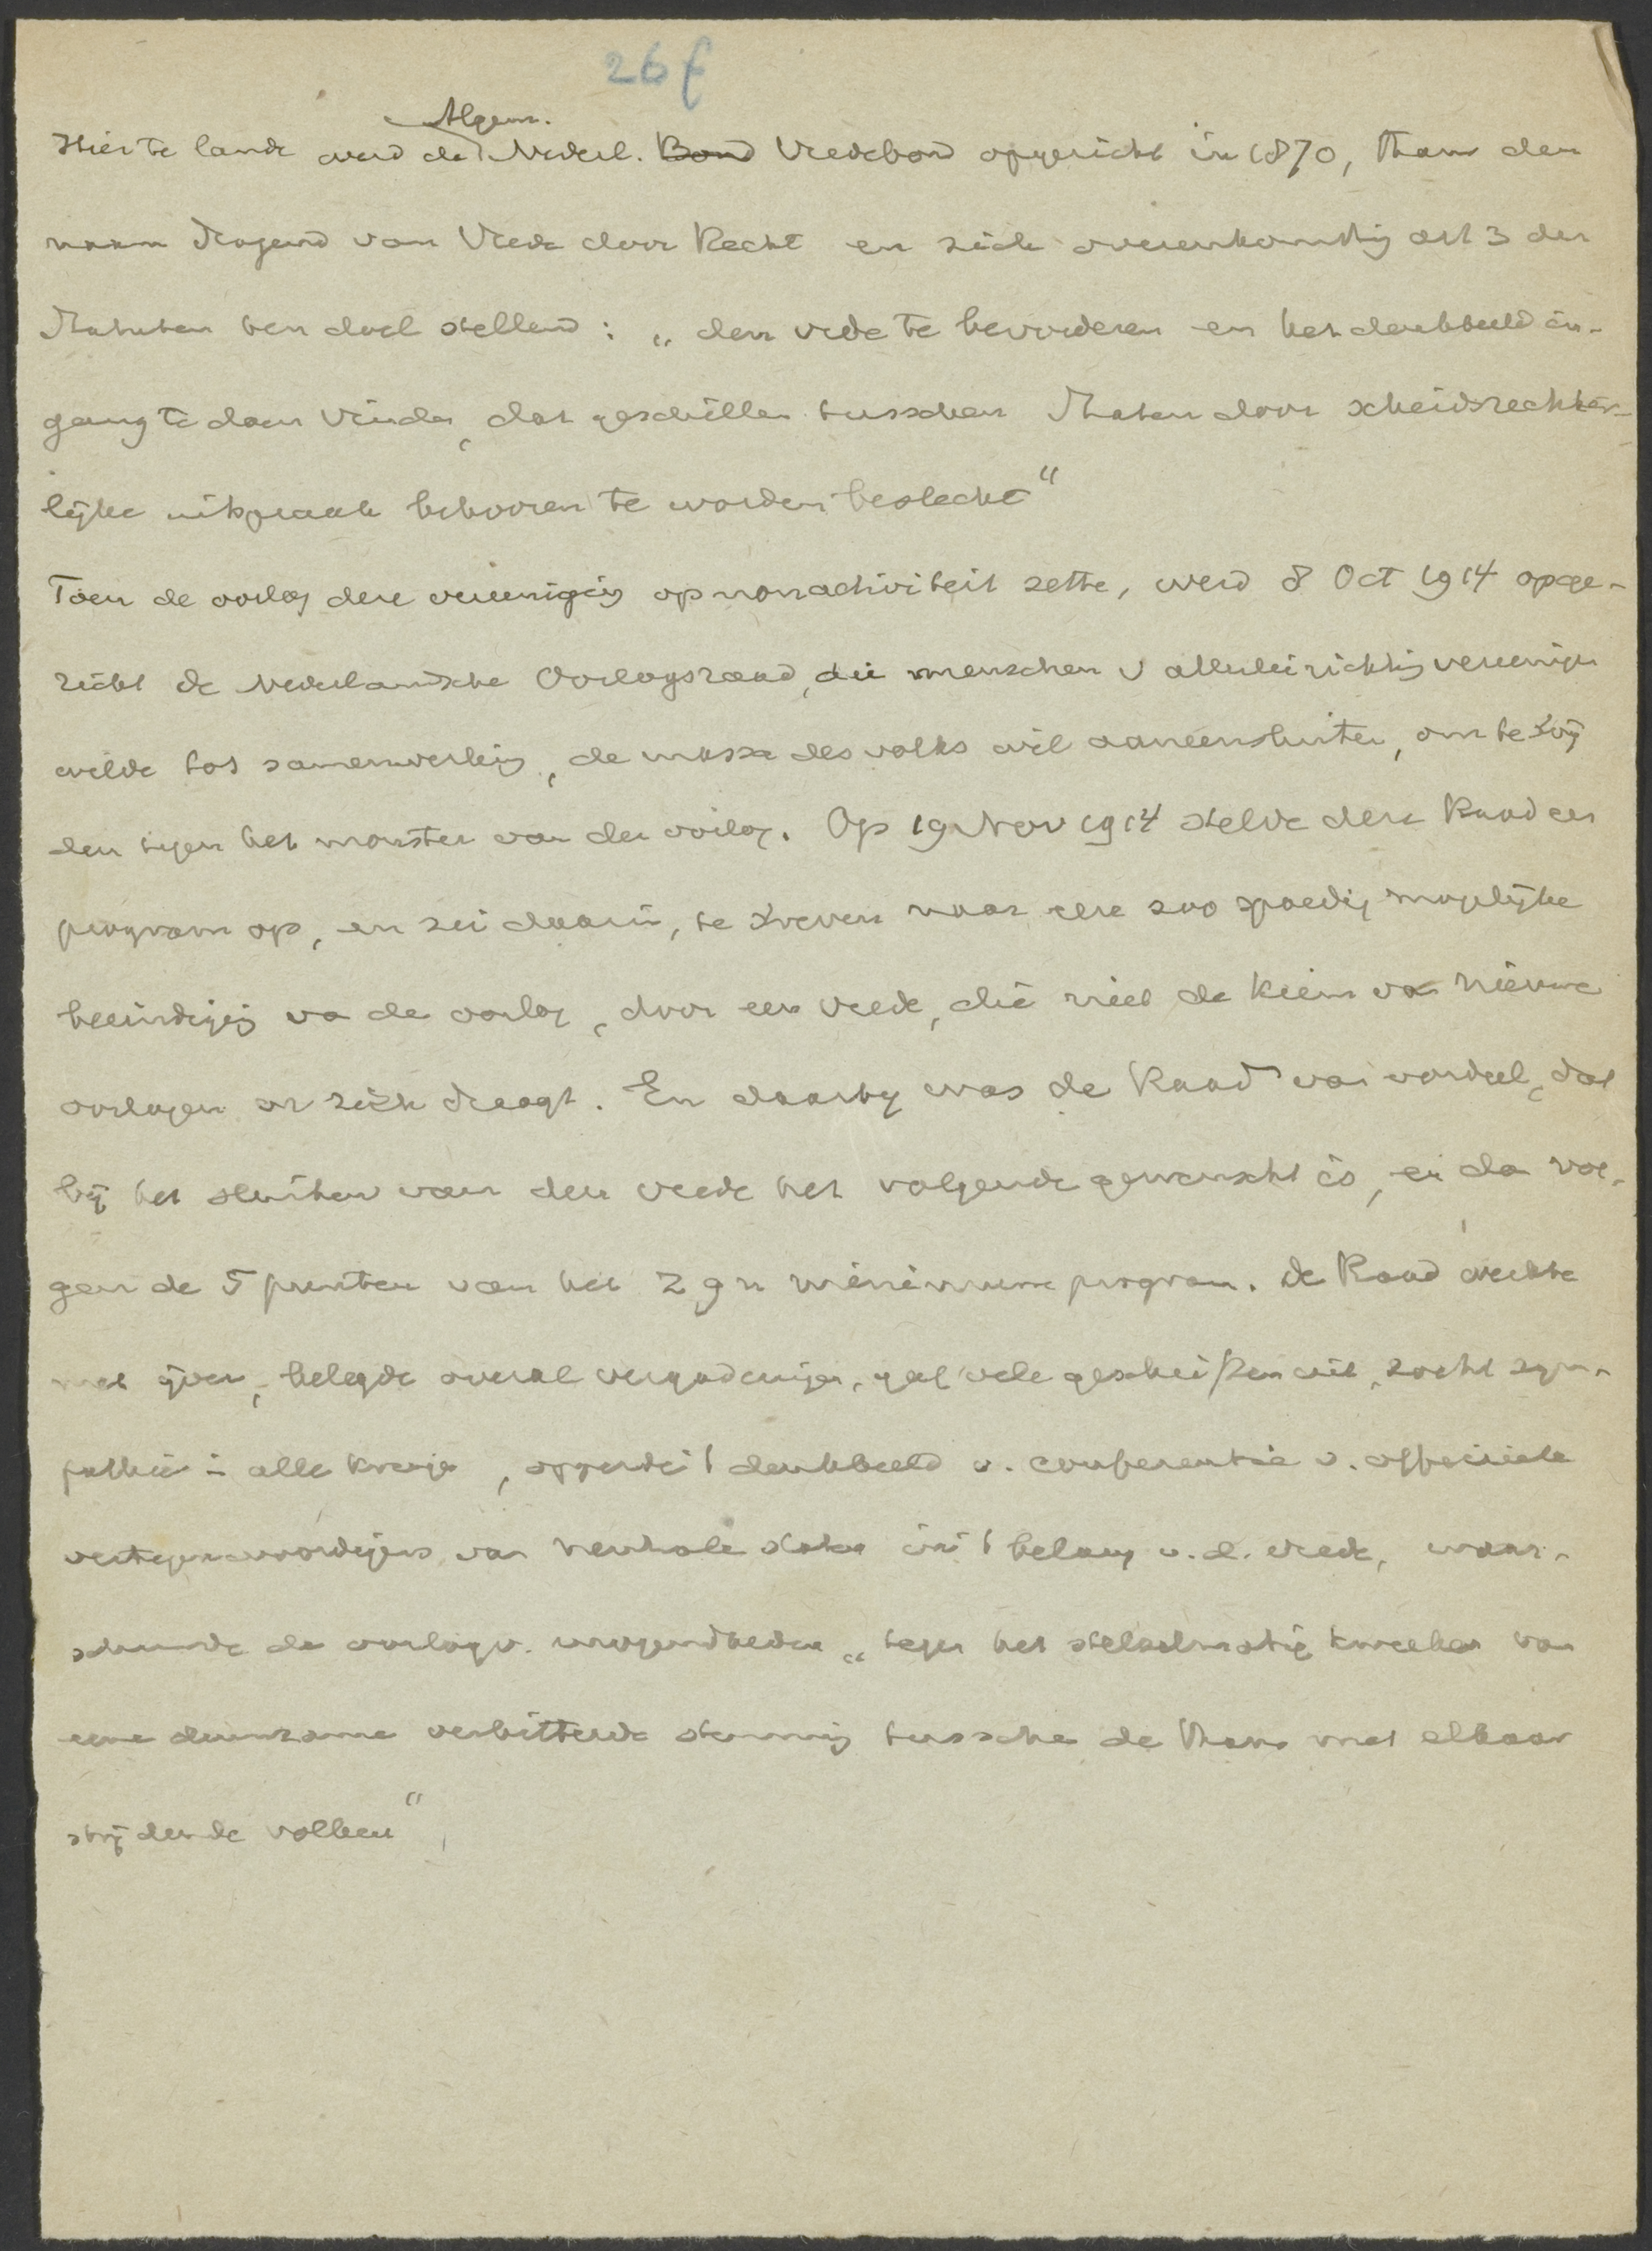 26f
Algem.
Hier te lande werd de Nederl. Bond Vredebond opgericht in 1870, thans den
naam dragend van Vrede door Recht en zich overeenkomstig art 3 der
Statuten ten doel stellend: „den vrede te bevorderen en het denkbeeld in-
gang te doen vinden, dat geschillen tusschen Staten door scheidsrechter-
lijke uitspraak behooren te worden beslecht"
Toen de oorlog deze vereeniging op nonactiviteit zette, werd 8 Oct 1914 opge-
richt de Nederlandsche Oorlogsraad, die menschen v allerlei richting vereenigen
wilde tot samenwerking, de massa des volks wil aaneensluiten, om te strij
den tegen het monster van den oorlog. Op 19 Nov 1914 stelde deze Raad een
program op, en zei daarin, te streven naar eene zoo spoedig mogelijke
beëindiging va de oorlog, door een vrede, die niet de kiem van nieuwe
oorlogen in zich draagt. En daarbij was de Raad van oordeel, dat
bij het sluiten van den vrede het volgende gewenscht is, en dan vol-
gen de 5 punten van het zgn minimum program. De Raad werkte
met ijver, belegde overal vergaderingen, gaf vele geschriften uit, zocht sym-
pathie in alle kringen, opperde 't denkbeeld v. conferentie v. officieele
vertegenwoordigers van neutrale staten in 't belang v. d. vrede, waar-
schuwde de oorlogv. mogendheden „tegen het stelselmatig kweeken van
eene duurzame verbitterde stemming tusschen de thans met elkaar
strijdende volken"